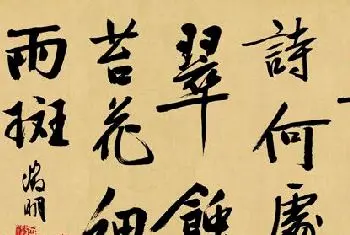 詩何處
翠蝕
苔花細
雨斑
徵明